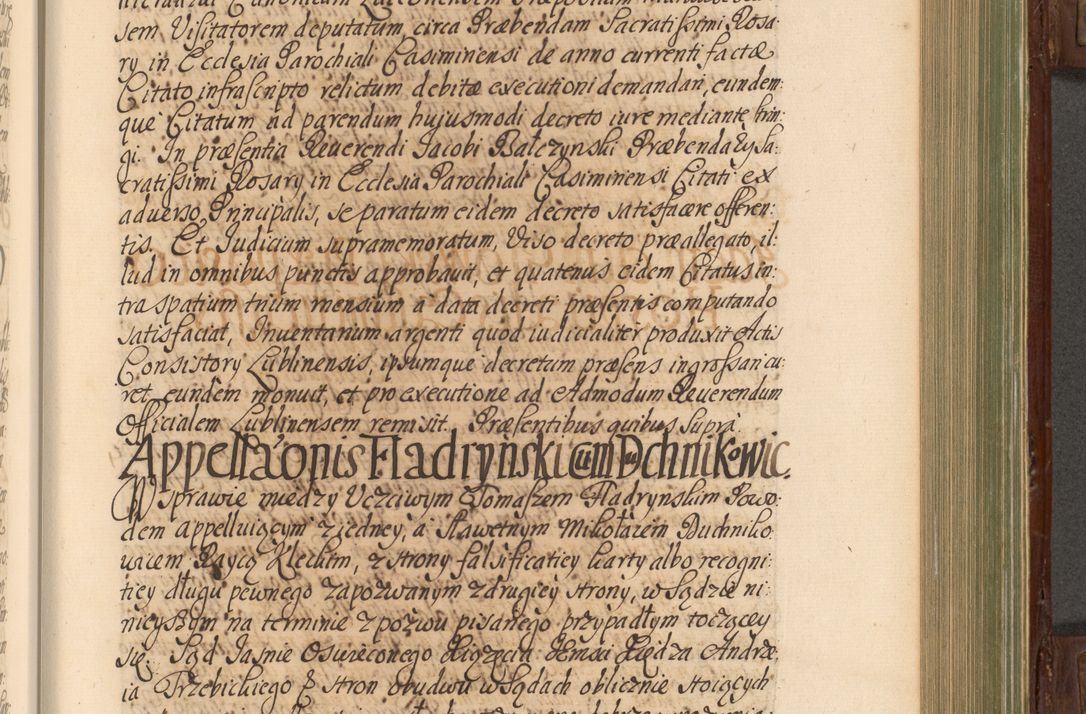 sem Visitatorem deputatum, circa Præbendam Sacratissimi Rosa
ry in Ecclesia Parochiali Casiminensi de anno currenti factæ
Citato infrascripto relictum debitæ executioni demandari, eundem
que Citatum ad parendum hujusmodi decreto iure mediante
In præsentia Reverendi Iacobi Balczynski Præbendary Sa:
cratissimi Rosary in Ecclesia Parochiali Casiminensi Citati ex
adverso Principalis, se paratum eidem decreto satisfacere offeren:
tis. Et Iudicium supramemoratum, Viso decreto præallegato, il:
lud in omnibus punctis approbavit, et quatenus eidem Citatus in:
tra spatium trium mensium a data decreti præsentis computando
satisfaciat, Inventarium argenti quod iudicialiter produxit Actis
Consistory Lublinensis, ipsumque decretum præsens ingrossari cu:
ret eundem monuit, et pro executione ad Admodum Reverendum
Officialem Lublinensem remisit. Præsentibus quibus supra.
Appellaōnis Fladryński cum Dchnikowic.
W sprawie między Uczciwym Tomaszem Fladrynskim Powo:
dem appelluiącym z iedney, a Sławetnym Mikołaiem Duchniko:
wicem Raycą Kleckim, z strony falsificatiey karty albo recogni:
tiey długu pewnego zapozwanym z drugiey strony, w Sądzie ni:
nieyszym na terminie z pozwu pisanego przypadłym toczącey
się. Sąd Iasnie Oswieconego Xiążęcia Iemsci Xiędza Andrze
ia Trzebickiego stron obudwu w Sądach oblicznie stoiących